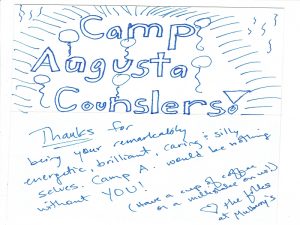 Camp
Augusta
Counslers!
Thanks for
being your remarkably
energetic, brilliant, caring & silly
selves. Camp A. would be nothing
without YOU!
(Have a cup of coffee
or a milkshake on us!)
the folks
at